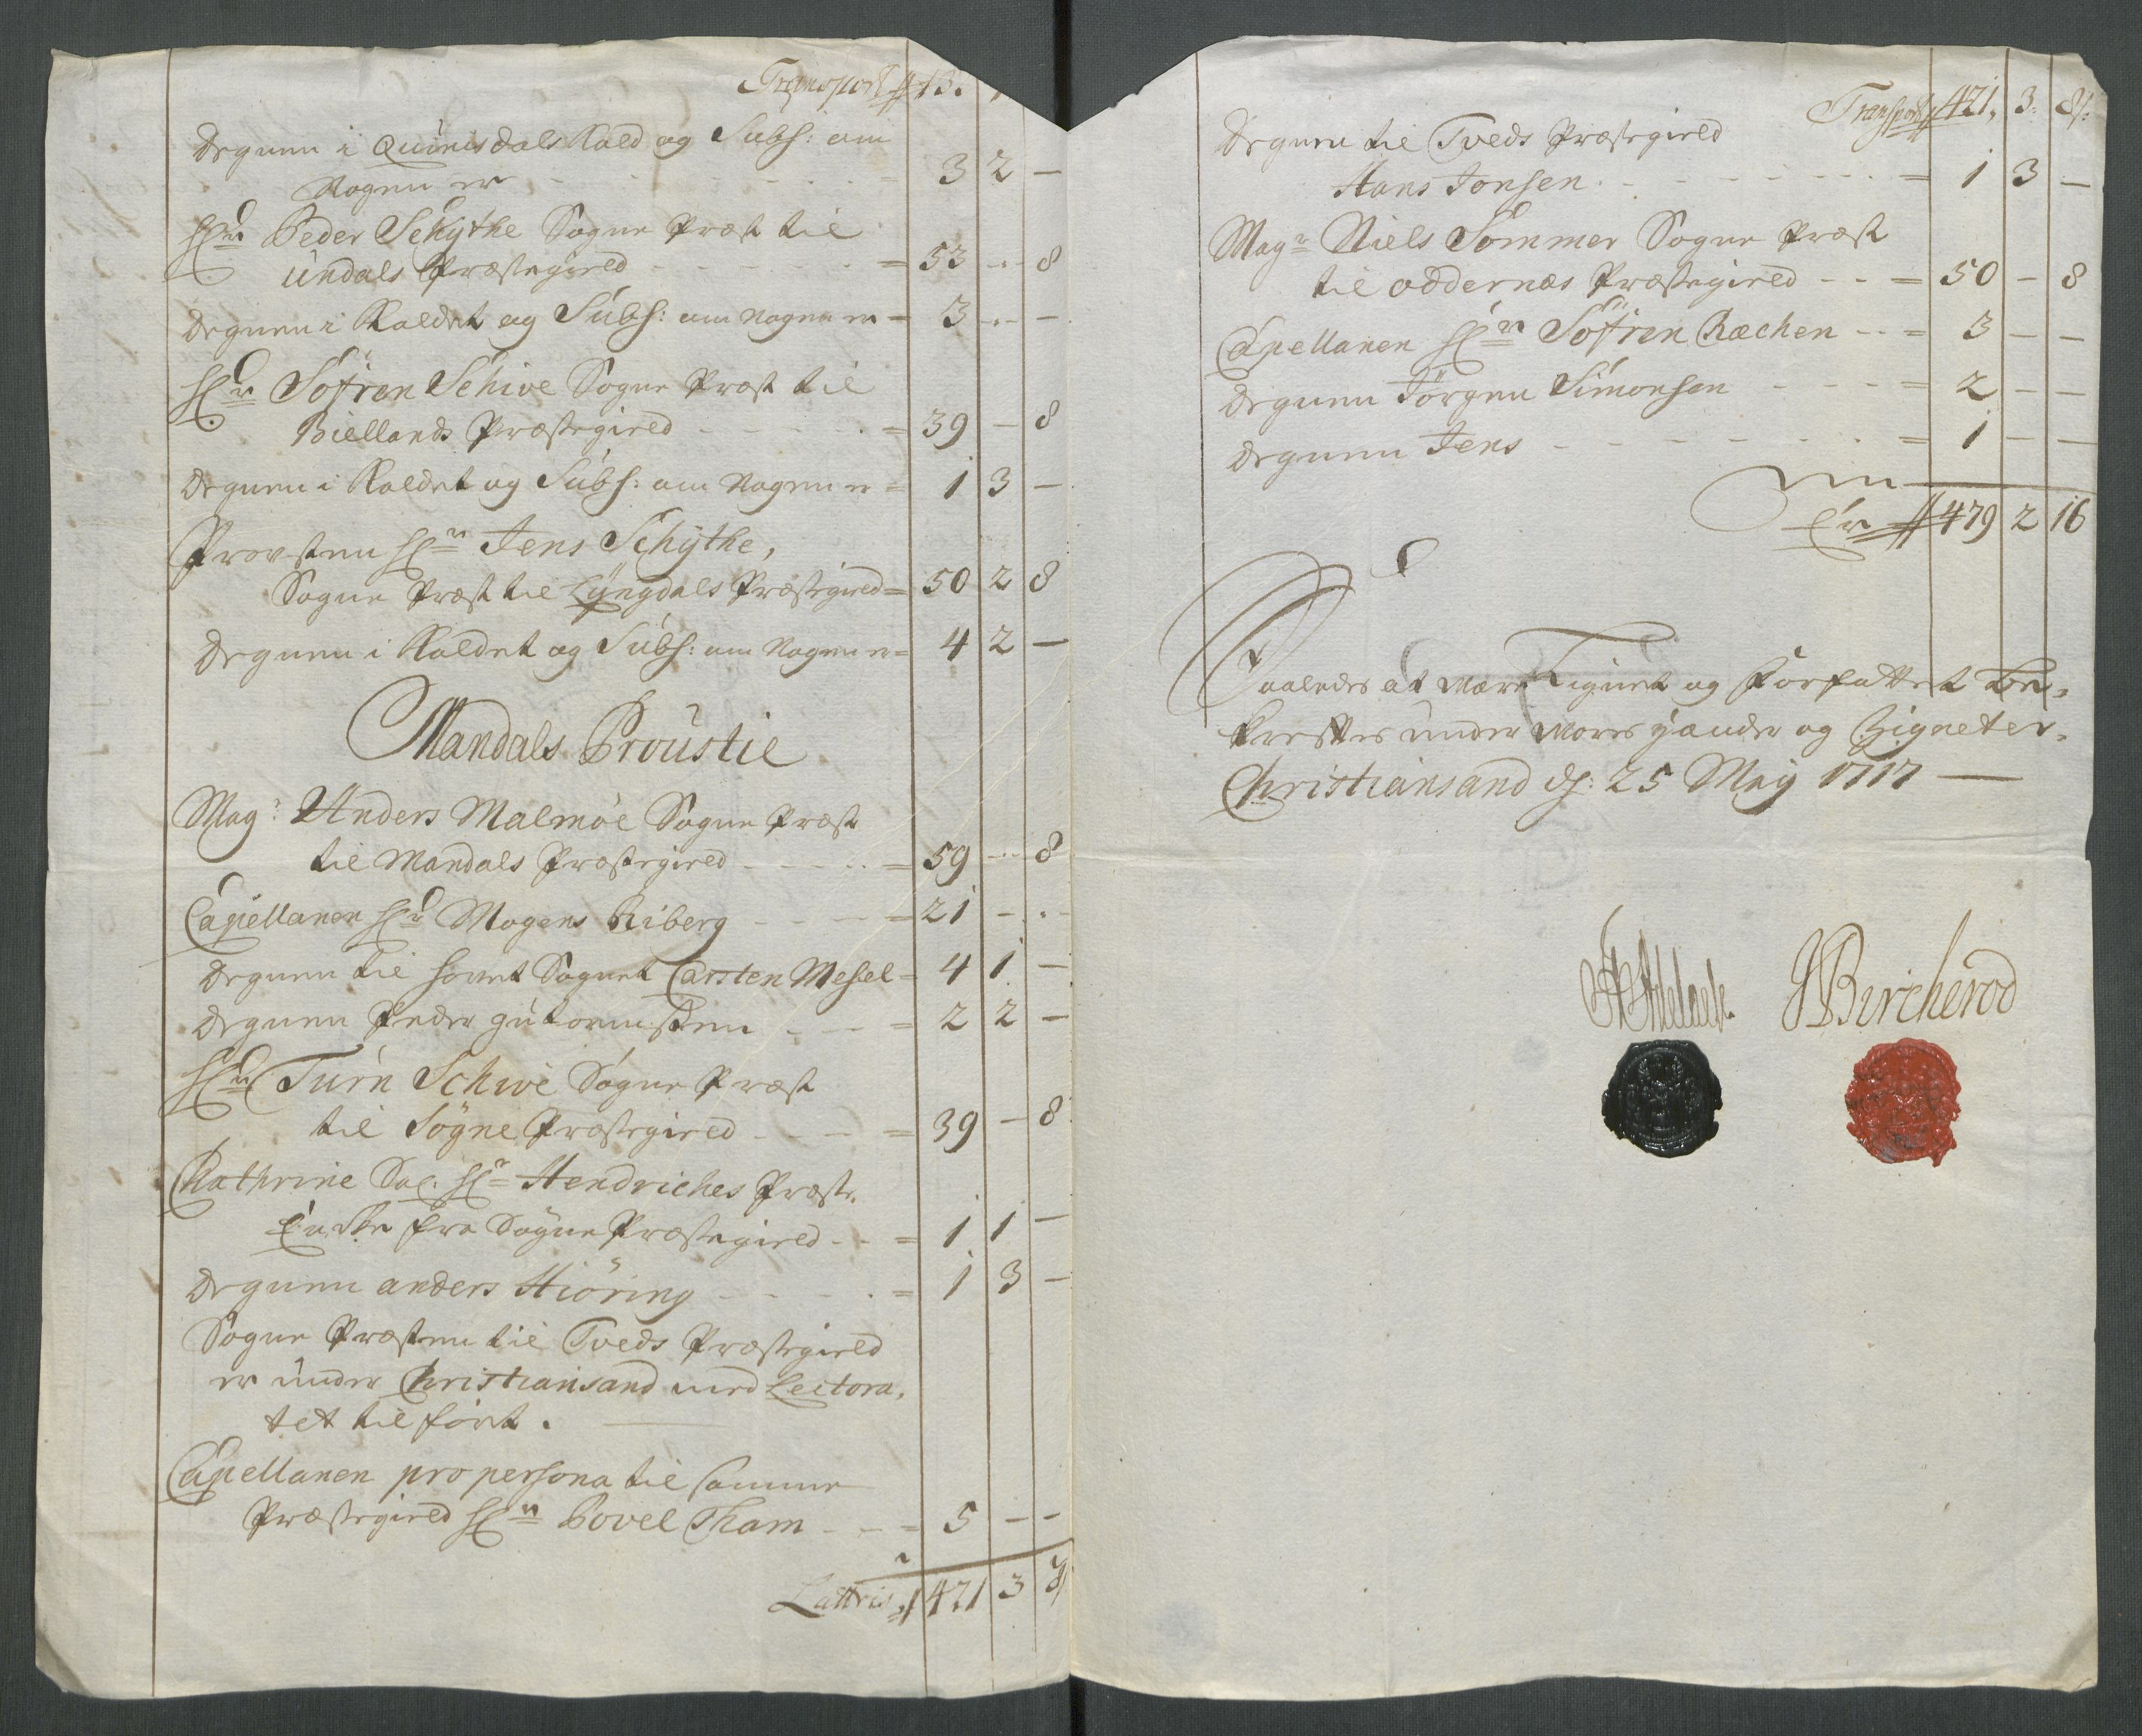 Transport 13.
Degnen i Quinisdals Kald og Subs: om
Nogen er 3 2 —
Hr Peder Schÿthe Sogne Præst til
Undals Præstegield 53 — 8
Degnen i Kaldet og Subs: om Nogen er 3 — —
Hr Søfren Schive Sogne Præst til
Biellands Præstegield 39 — 8
Degnen i Kaldet og Subs: om Nogen er 1 3 —
Provsten Hr Jens Schÿthe,
Sogne Præst til Lÿngdals Præstegield 50 2 8
Degnen i Kaldet og Subs: om Nogen er 4 2 —
Mandals Proustie
Magr Anders Malmöe Sogne Præst
til Mandals Præstegield 59 — 8
Capellanen Hr Mogens Riberg 21 — —
Degnen til hovet Sognet Carsten Mesel 4 1 —
Degnen Peder Gutormsen 2 2 —
Hr Turn Schive Sogne Præst
til Sögne Præstegield 39 — 8
Kathrine Sal. Hr Hendriches Præste
Encke fra Sögne Præstegield 1 1 —
Degnen anders Hiöring 1 3 —
Sogne Præsten til Tveds Præstegield
er under Christiansand med Lectora,
tet tilført.
Capellanen pro persona til samme
Præstegield Hr Povel Tham 5 — —
Lattris 471 3 8
Transport 471, 3. 8
Degnen til Tveds Præstegield
Hans Jonsen 1 3 —
Magr Niels Sommer Sogne Præst
til oddernæs Præstegield 50 — 8
Capellanen Hr Søfren Rachen 3 — —
Degnen Jörgen Simonsen 2 — —
Degnen Jens 1 — —
Er 479 2 16
Saaledes at være Lignet og Forfattet be,
kreftes under vores hænder og Zigneter.
Christiansand d: 25 Maÿ 1717
JBircherod